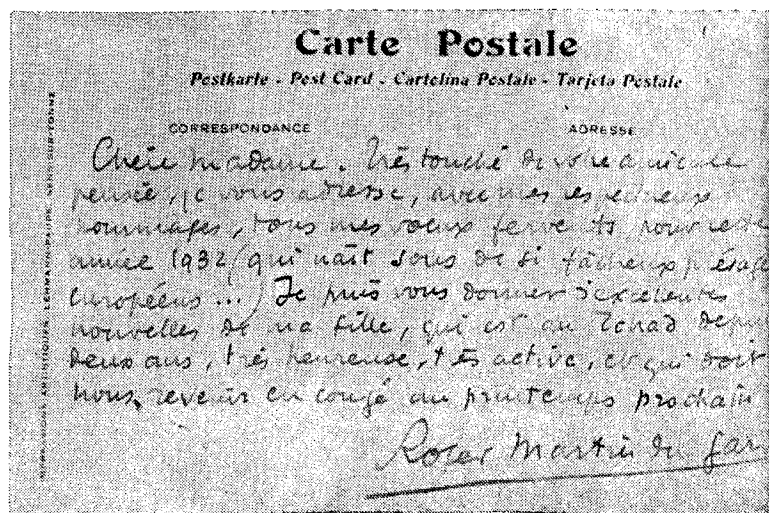 Carte Postale
Postkarte - Post Card - Cartolina Postale - Tarjeta Postale
CORRESPONDANCE
ADRESSE
Chère madame. Très touché de votre amicale
pensée, je vous adresse, avec mes respectueux
hommages, tous mes vœux fervents pour cette
année 1932 (qui naît sous de si fâcheux présages
européens...) Je puis vous donner d'excellentes
nouvelles de ma fille, qui est au Tchad depuis
deux ans, très heureuse, très active, et qui doit
nous revenir en congé au printemps prochain
Roger Martin du Gar